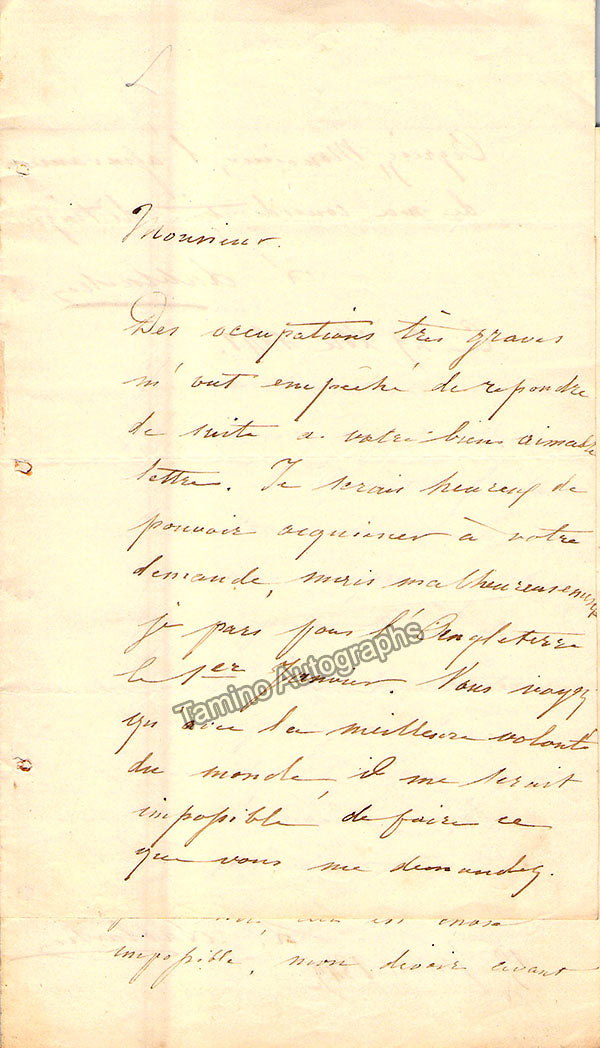 Monsieur.
Des occupations très graves
m'ont empêché de repondre
de suite a votre bien aimable
lettre. Je serais heureux de
pouvoir acquiescer à votre
demande, mais malheureusement
je pars pour l'Angleterre
le 1er Janvier. Vous voyez
qu'avec la meilleure volonté
du monde, il me serait
impossible de faire ce
que vous me demandez.
est chose
impossible, mon devoir avant
Tamino Autographs